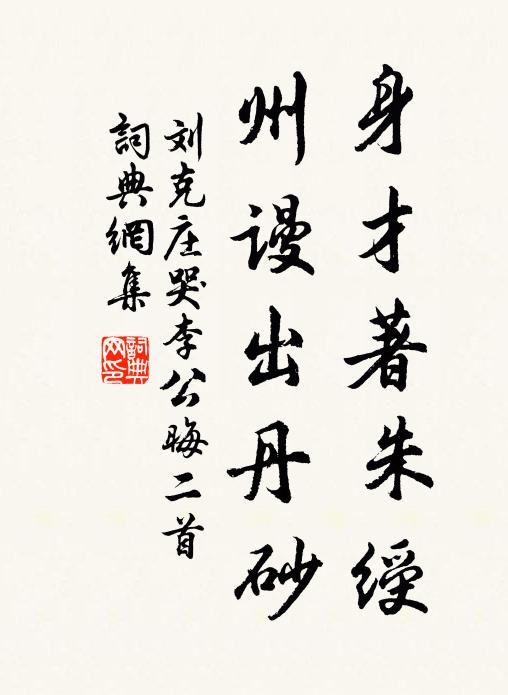 身才著朱绶
州谩出丹砂
刘克庄哭李公晦二首
詞典網集
詞典网印